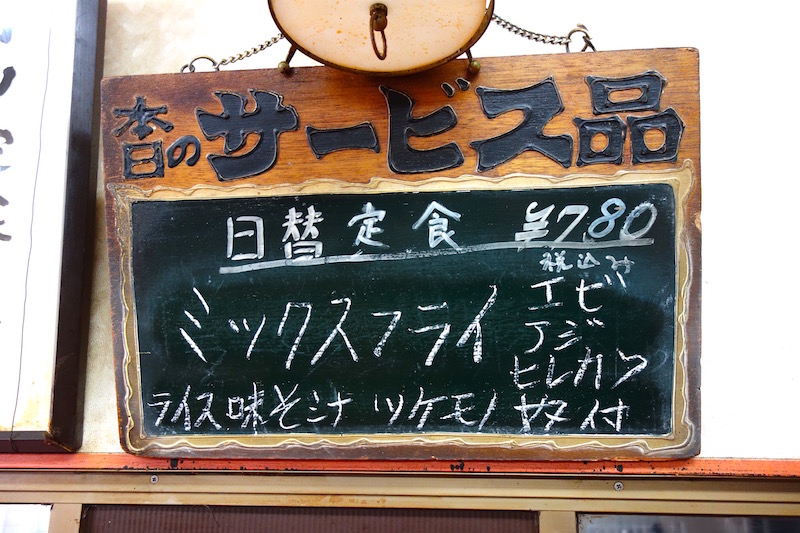 本日のサービス品
日替定食 ¥780
税込み
ミックスフライ
エビ
アジ
ヒレカツ
ライス 味そ汁 ツケモノ 付